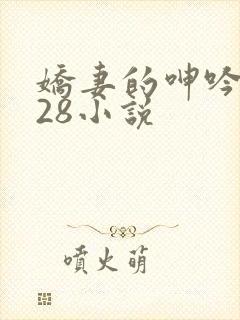 嬌妻的呻吟
28小說
噴火萌